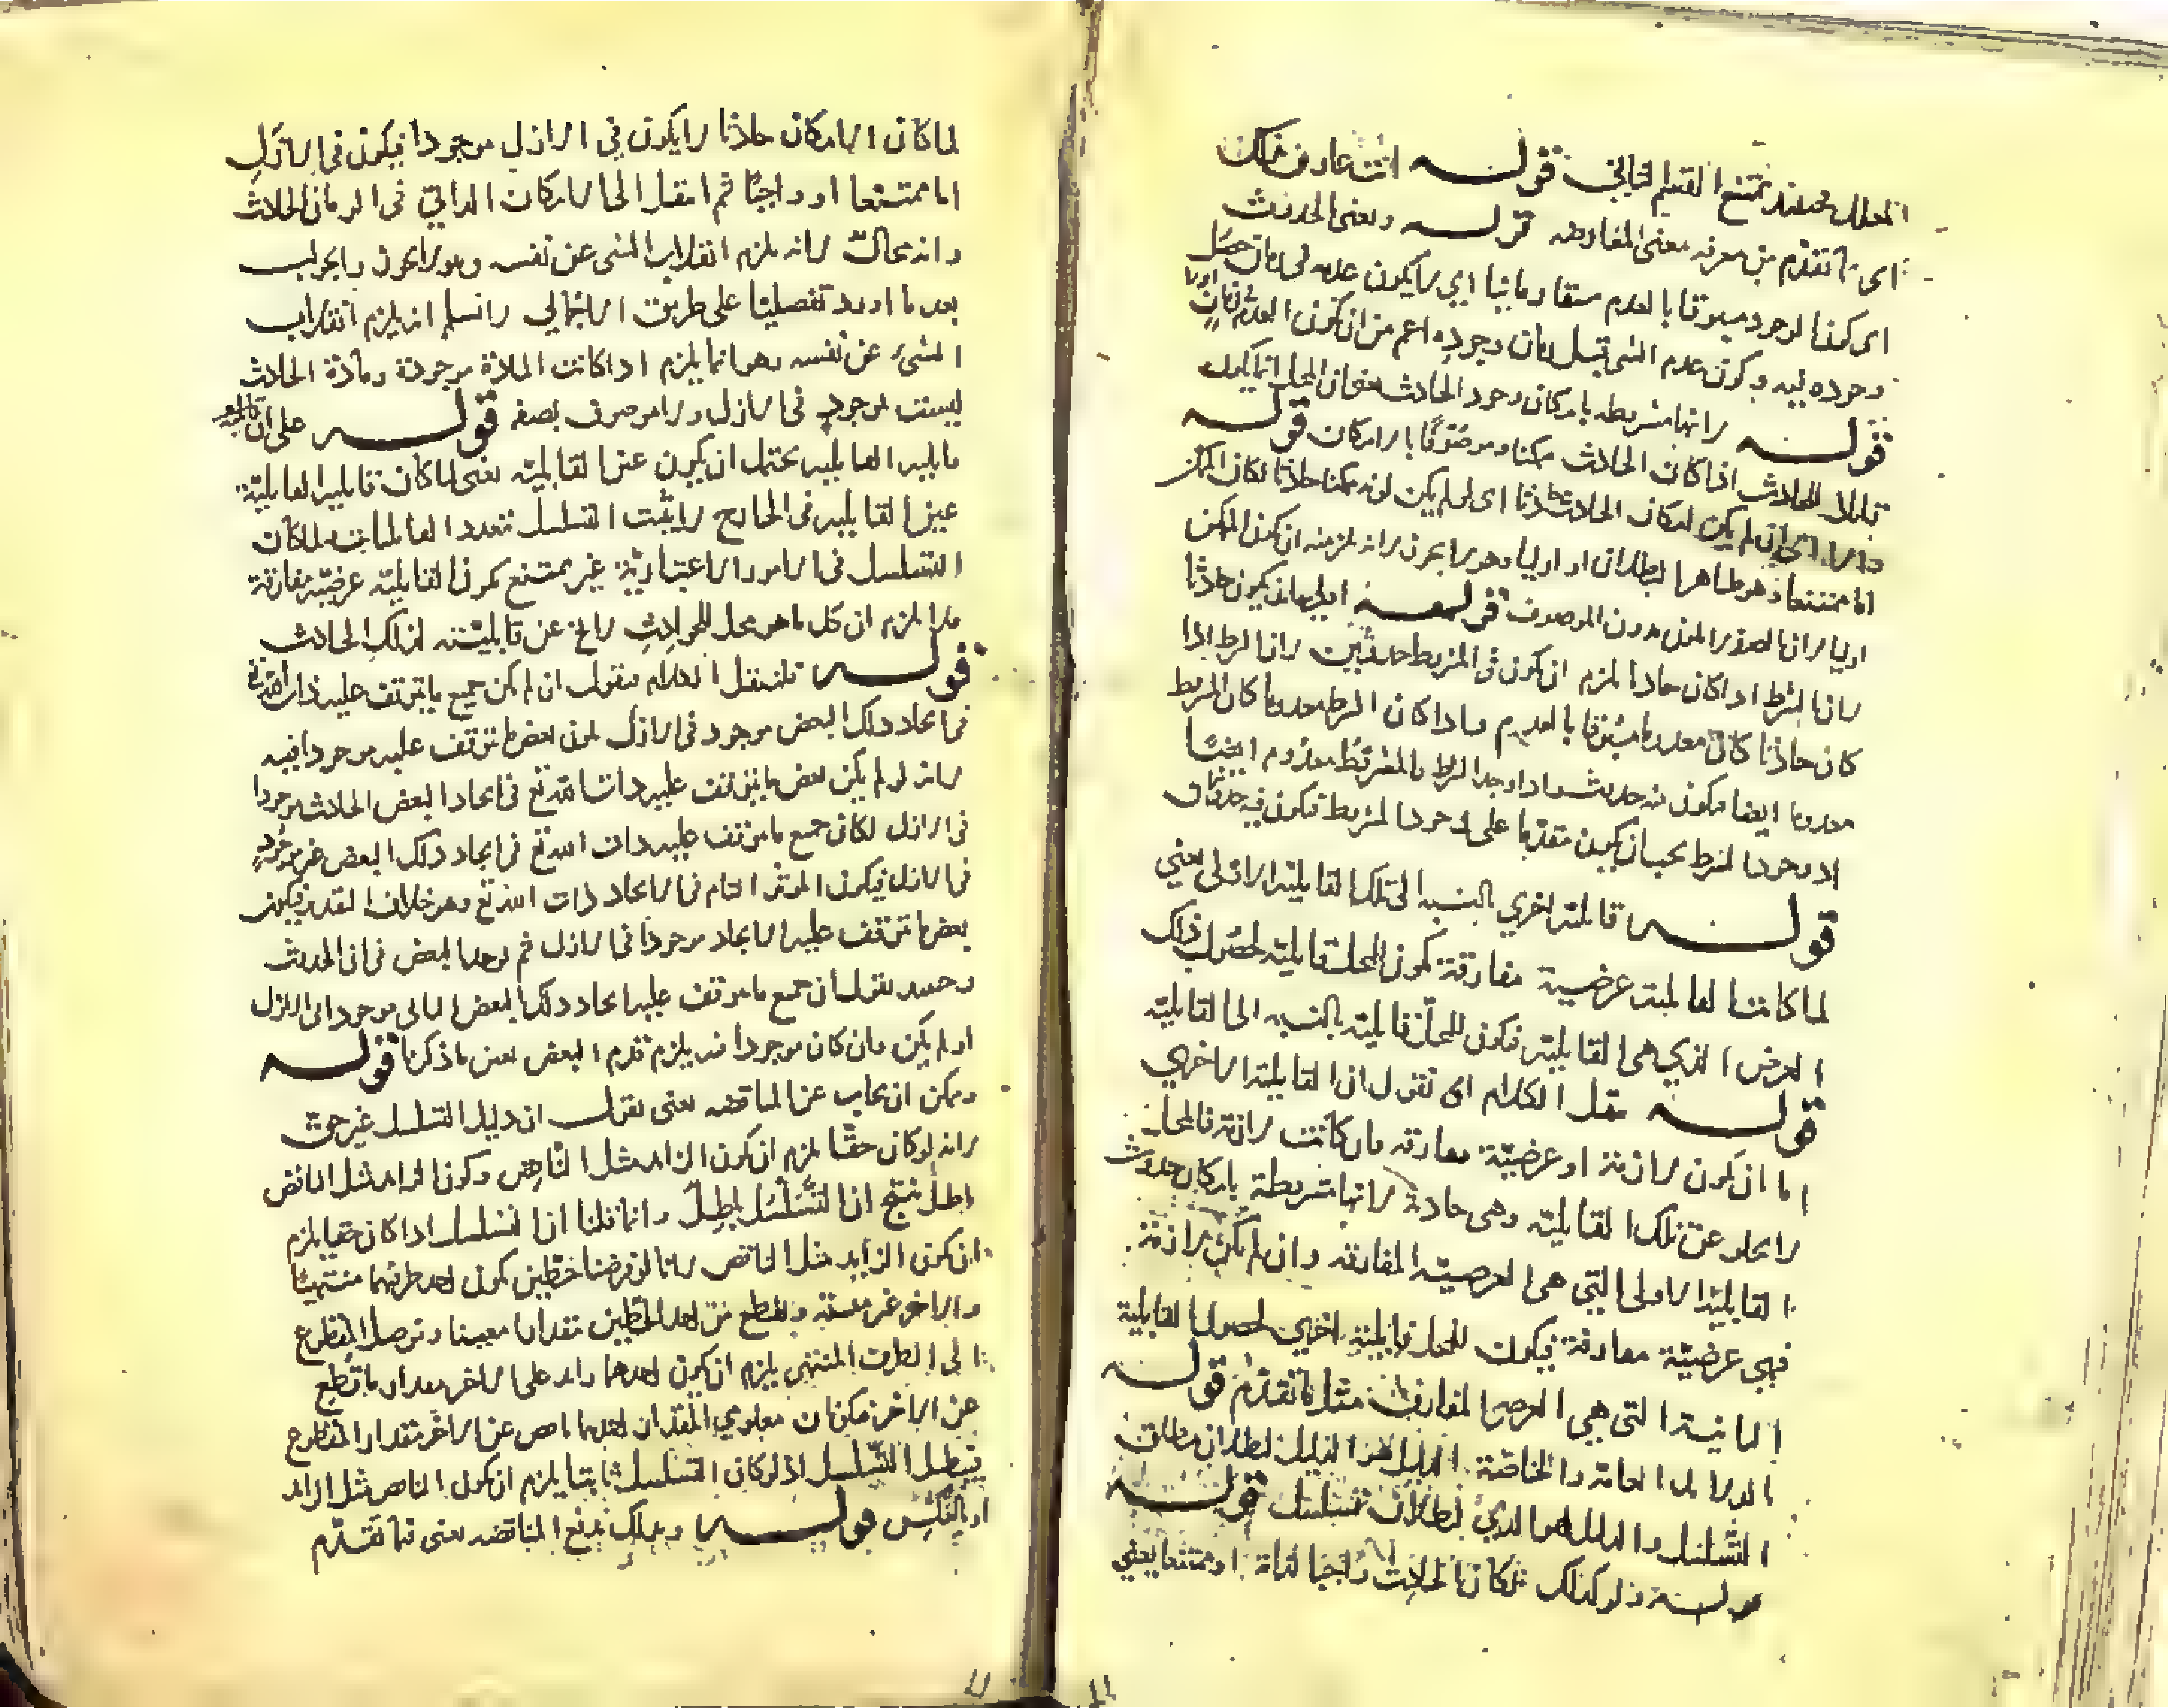 المحال فحينئذ يمتنع القسم الثاني قوله انت عارف من ذلك
اى ما تقدم من معرفه معنى المفارقه قوله ومعنى الحدوث
اى كون الوجود مسبوقا بالعدم سبقا زمانيا اي لا يكون عدمه فى زمان حصل
وجوده فيه وكون عدم الشى قبل زمان وجوده اعم من ان يكون العدم فى زمان اولا
قوله لانها مشروطه بامكان وجود الحادث يعنى ان المحل انما يكون
قابلا للحادث اذا كان الحادث ممكنا وموصوفا بالامكان قوله
والا اى وان لم يكن امكان الحادث حادثا اى لو لم يكن كونه ممكنا حادثا لكان الممكن
اما ممتنعا وهو ظاهر البطلان او ازليا وهو لا يجوز لانه يلزم منه ان يكون الممكن
ازليا لان الصفه لا تكون بدون الموصوف قوله اولى بان يكون حادثا
لان الشرط اذا كان حادثا يلزم ان يكون فى المشروط حدوثين لان الشرط اذا
كان حادثا كان معدوما مسبوقا بالعدم واذا كان الشرط معدوما كان المشروط
معدوما ايضا فيكون فيه حدوث واذا وجد الشرط فالمشروط معدوم ايضا
اذ وجود الشرط يجب ان يكون متقدما على وجود المشروط فيكون فيه حدوثان
قوله قابلية اخرى بالنسبه الى تلك القابلية الاولى يعني
لما كانت القابلية عرضية مفارقة يكون للمحل قابلية لحصول ذلك
العرض الذي هى القابلية فيكون للمحل قابلية بالنسبه الى القابلية
قوله ننقل الكلام اى نقول ان القابلية الاخرى
اما ان تكون لازمة او عرضية مفارقه فان كانت لازمة فالمحل
لا يخلو عن تلك القابلية وهى حادثة لانها مشروطة بامكان حدوث
القابلية الاولى التي هى العرضية المفارقه وان لم يكن لازمة
فهى عرضية مفارقة فيكون للمحل قابلية اخرى لحصول القابلية
الثانية التى هي العرض المفارق مثل ما تقدم قوله
الدلايل العامة والخاصة الدليل هو الدليل لبطلان مطلق
التسلسل والدليل هو الذي لبطلان تسلسل قوله
قوله ولو كذلك لكان الحادث واجبا لذاته او ممتنعا يعني
لما كان الامكان حادثا لا يكون في الازل موجودا فيكون فى الازل
اما ممتنعا او واجبا ثم انتقل الى الامكان الذاتي فى الزمان الحادث
وانه محال لانه يلزم انقلاب الشى عن نفسه وهو لا يجوز والجواب
بعد ما اورد تفصيليا على طريق الاجمالي لا نسلم انه يلزم انقلاب
الشئ عن نفسه وهو انما يلزم اذا كانت المادة موجودة ومادة الحادث
ليست بموجود فى الازل ولا موصوف بصفه قوله على ان
قابلية القابلية يحتمل ان يكون عين القابلية يعنى لما كان قابلية القابلية
عين القابلية فى الخارج لا يثبت التسلسل تعدد القابليات ولما كان
التسلسل فى الامور الاعتبارية غير ممتنع يكون القابلية عرضية مفارقة
فلا يلزم ان كل ما هو محل للحوادث لا يخ عن قابليته لذلك الحادث
قوله فلننقل الكلام فنقول ان لم يكن جميع ما يتوقف عليه ذات الله تع
فى ايجاد ذلك البعض موجود فى الازل يكون بعض ما يتوقف عليه موجودا فيه
لانه لو لم يكن بعض ما يتوقف عليه ذات الله تع فى ايجاد البعض الحادث موجودا
فى الازل لكان جميع ما يتوقف عليه ذات الله تع فى ايجاد ذلك البعض غير موجود
فى الازل فيكون الموثر التام فى الايجاد ذات الله تع وهو خلاف التقدير فيكون
بعض ما يتوقف عليه الايجاد موجودا فى الازل ثم يوجد البعض فى ان الحدوث
وحينئذ نقول ان جميع ما يتوقف عليه ايجاد ذلك البعض الثانى موجود فى الازل
او لم يكن فان كان موجودا فيه يلزم قدم البعض بعين ما ذكرنا قوله
ويمكن ان يجاب عن المناقضه يعنى نقول ان دليل التسلسل غير حق
لانه لو كان حقا يلزم ان يكون الزايد مثل الناقص وكون الزايد مثل الناقص
باطل ينتج ان التسلسل باطل وانما قلنا ان التسلسل اذا كان حقا يلزم
ان يكون الزايد مثل الناقص لانا لو فرضنا خطين يكون احد طرفهما منتهيا
والاخر غير منته ونقطع من احد الخطين مقدارا معينا ونوصل المقطوع
الى الطرف المنتهى يلزم ان يكون احدهما زايد على الاخر بمقدار ما قطع
عن الاخر فيكونان معلومي المقدار احدهما انقص عن الاخر بمقدار المقطوع
فيبطل التسلسل اذ لو كان التسلسل ثابتا يلزم ان يكون الناقص مثل الزايد
او بالعكس قوله وبذلك يدفع المناقضه يعنى بما تقدم